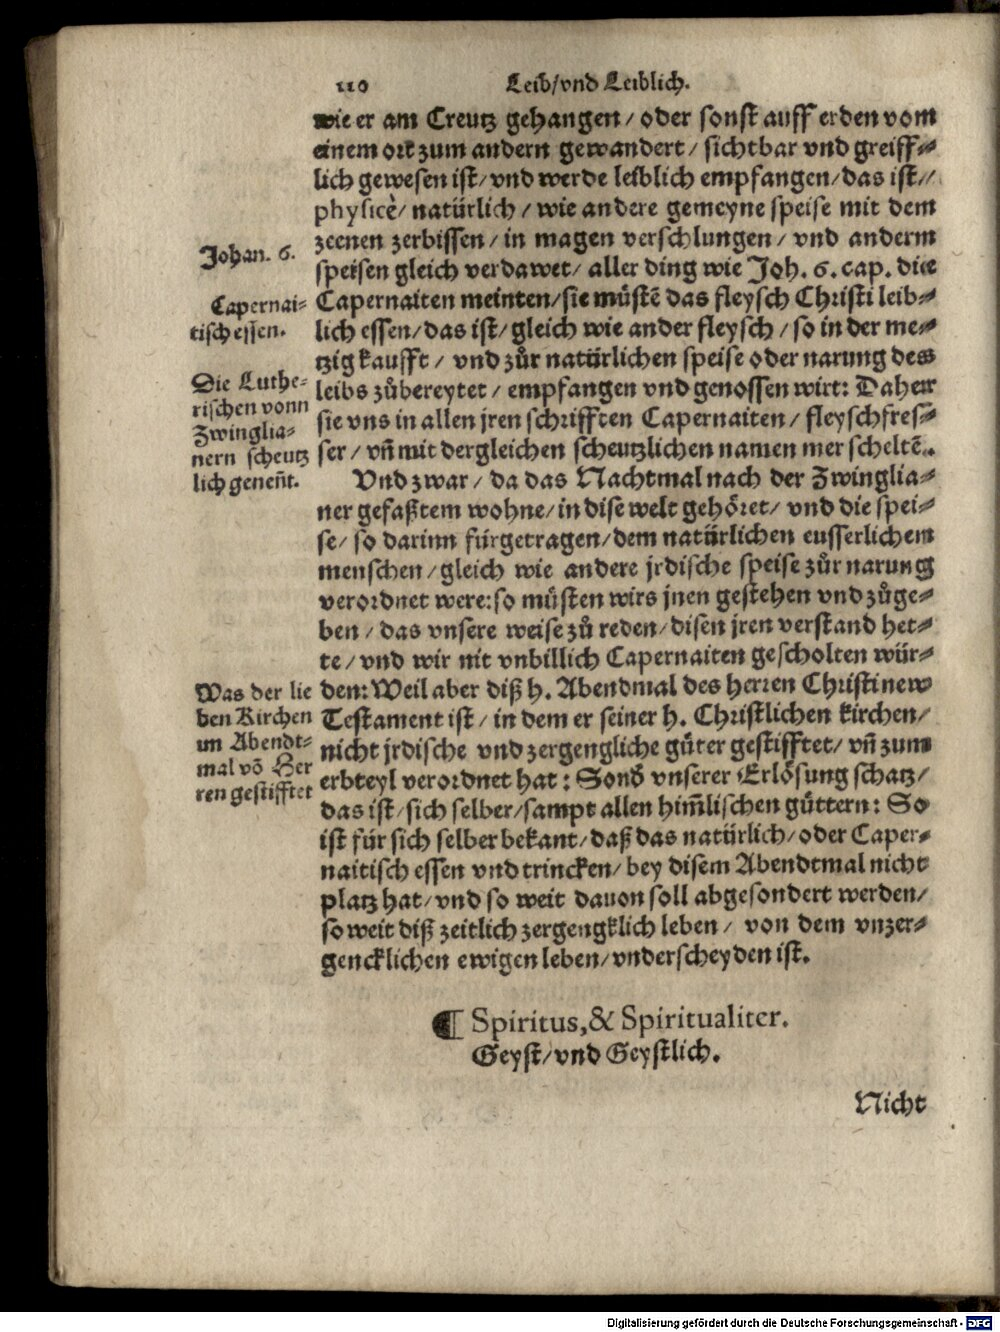 110 Leib/vnd Leiblich.
wie er am Creutz gehangen/ oder sonst auff erden vom
einem ort zum andern gewandert/ sichtbar vnd greiff⸗
lich gewesen ist/ vnd werde leiblich empfangen/ das ist/
physicè/ natürlich/ wie andere gemeyne speise mit dem
zeenen zerbissen/ in magen verschlungen/ vnd anderm
speisen gleich verdawet/ aller ding wie Joh. 6. cap. die
Capernaiten meinten/ sie müstē das fleysch Christi leib⸗
lich essen/ das ist/ gleich wie ander fleysch/ so in der me⸗
tzig kaufft/ vnd zůr natürlichen speise oder narung des
leibs zůbereytet/ empfangen vnd genossen wirt: Daher
sie vns in allen jren schrifften Capernaiten/ fleyschfres⸗
ser/ vñ mit dergleichen scheutzlichen namen mer scheltē.
Johan. 6.
Capernai⸗
tisch essen.
Die Luthe⸗
rischen vonn
Zwinglia⸗
nern scheutz
lich geneñt.
Vnd zwar/ da das Nachtmal nach der Zwinglia⸗
ner gefaßtem wohne/ in dise welt gehöret/ vnd die spei⸗
se/ so darinn fürgetragen/ dem natürlichen eusserlichem
menschen/ gleich wie andere jrdische speise zůr narung
verordnet were: so müsten wirs jnen gestehen vnd zůge⸗
ben/ das vnsere weise zů reden/ disen jren verstand het⸗
te/ vnd wir nit vnbillich Capernaiten gescholten wür⸗
den: Weil aber diß h. Abendmal des herren Christi new
Testament ist/ in dem er seiner h. Christlichen kirchen/
nicht jrdische vnd zergengliche güter gestifftet/ vñ zum
erbteyl verordnet hat: Sonď vnserer Erlösung schatz/
das ist/ sich selber/ sampt allen him̃lischen güttern: So
ist für sich selber bekant/ daß das natürlich/ oder Caper⸗
naitisch essen vnd trincken/ bey disem Abendtmal nicht
platz hat/ vnd so weit dauon soll abgesondert werden/
so weit diß zeitlich zergengklich leben/ von dem vnzer⸗
gencklichen ewigen leben/ vnderscheyden ist.
Was der lie
ben Kirchen
im Abendt⸗
mal vō Her
ren gestifftet
¶ Spiritus, & Spiritualiter.
Geyst/ vnd Geystlich.
Nicht
Digitalisierung gefördert durch die Deutsche Forschungsgemeinschaft - DFG